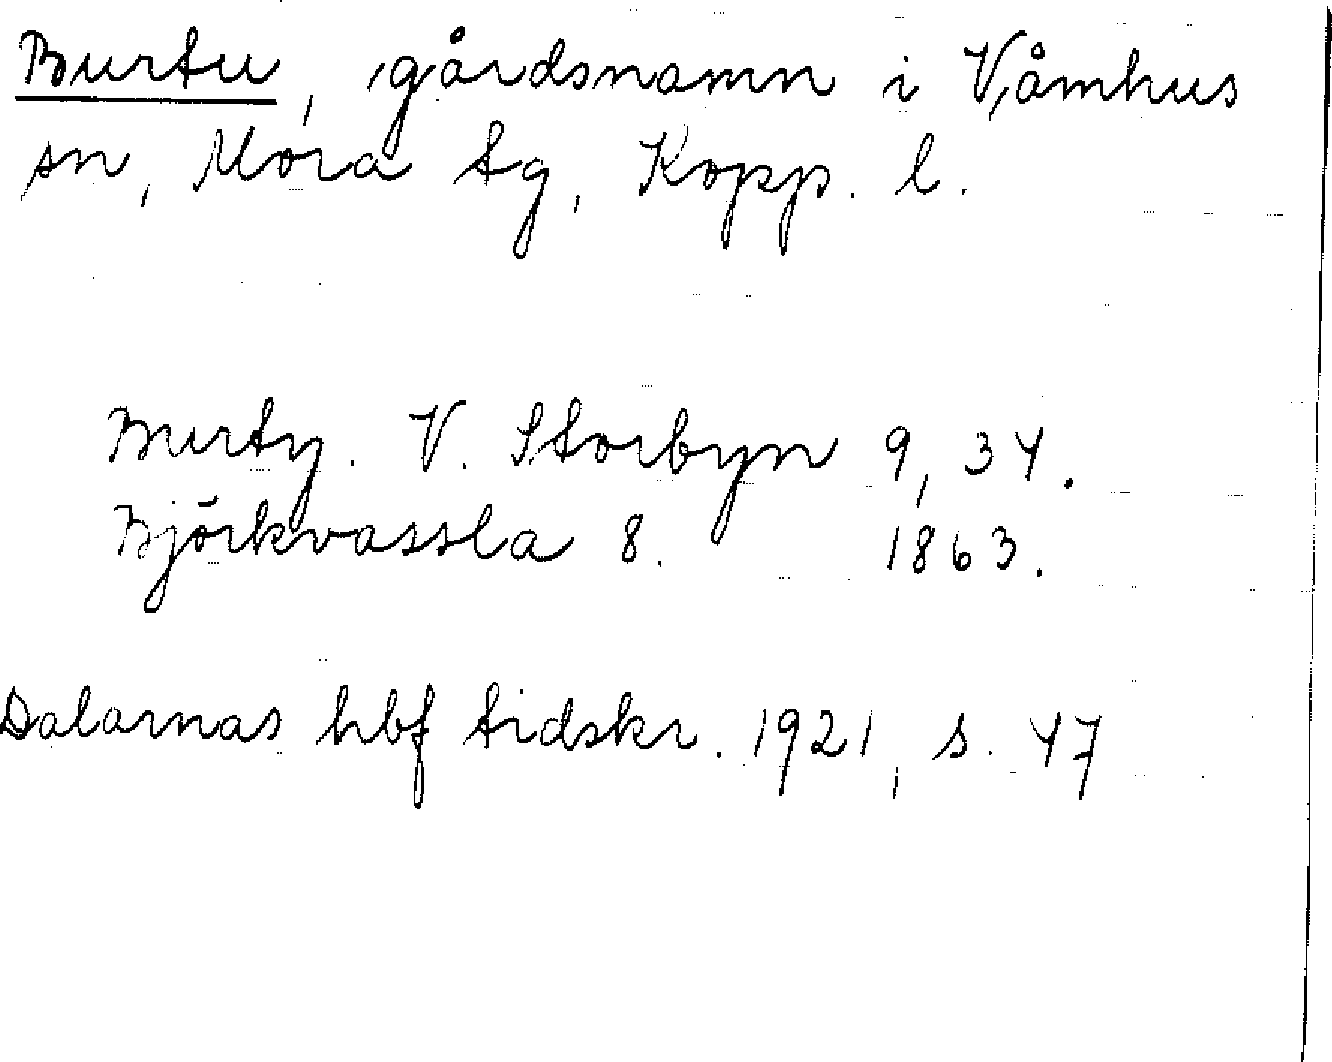 Burtu, gårdsnamn i Våmhus
sn, Mora tg, Kopp. l.
Burty. V. Storbyn 9, 34.
Björkvassla 8. 1863.
Dalarnas hbf tidskr. 1921, s. 47